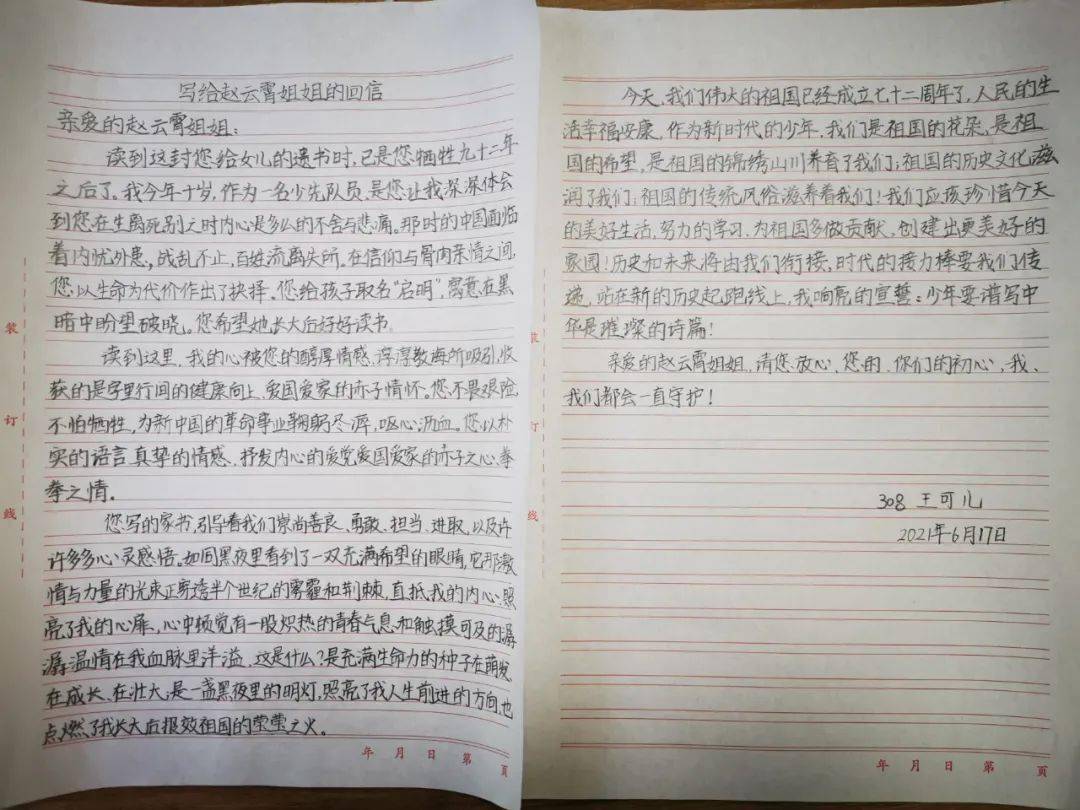 写给赵云霄姐姐的回信
亲爱的赵云霄姐姐：
读到这封您给女儿的遗书时，已是您牺牲九十二年
之后了。我今年十岁，作为一名少先队员，是您让我深深体会
到您在生离死别之时内心是多么的不舍与悲痛。那时的中国面临
着内忧外患，战乱不止，百姓流离失所。在信仰与骨肉亲情之间，
您以生命为代价作出了抉择。您给孩子取名“启明”，寓意在黑
暗中盼望破晓。您希望她长大后好好读书。
读到这里，我的心被您的醇厚情感、谆谆教诲所吸引，收
获的是字里行间的健康向上、爱国爱家的赤子情怀。您不畏艰险，
不怕牺牲，为新中国的革命事业鞠躬尽瘁，呕心沥血。您以朴
实的语言、真挚的情感，抒发内心的爱党爱国爱家的赤子之心、拳
拳之情。
您写的家书，引导着我们崇尚善良、勇敢、担当、进取，以及许
许多多心灵感悟。如同黑夜里看到了一双充满希望的眼睛，它那激
情与力量的光束正穿透半个世纪的雾霾和荆棘，直抵我的内心；照
亮了我的心扉，心中顿觉有一股炽热的青春气息和触摸可及的潺
潺温情在我血脉里洋溢，这是什么？是充满生命力的种子在萌发、
在成长、在壮大，是一盏黑夜里的明灯，照亮了我人生前进的方向，也
点燃了我长大后报效祖国的荧荧之火。
年 月 日 第 页
装
订
线
今天，我们伟大的祖国已经成立七十二周年了，人民的生
活幸福安康，作为新时代的少年，我们是祖国的花朵，是祖
国的希望，是祖国的锦绣山川养育了我们；祖国的历史文化滋
润了我们；祖国的传统风俗滋养着我们！我们应该珍惜今天
的美好生活，努力的学习，为祖国多做贡献，创建出更美好的
家园！历史和未来将由我们衔接，时代的接力棒要我们传
递，站在新的历史起跑线上，我响亮的宣誓：少年要谱写中
华是璀璨的诗篇！
亲爱的赵云霄姐姐，请您放心，您的、你们的初心，我、
我们都会一直守护！
308 王可儿
2021年6月17日
年 月 日 第 页
装
订
线